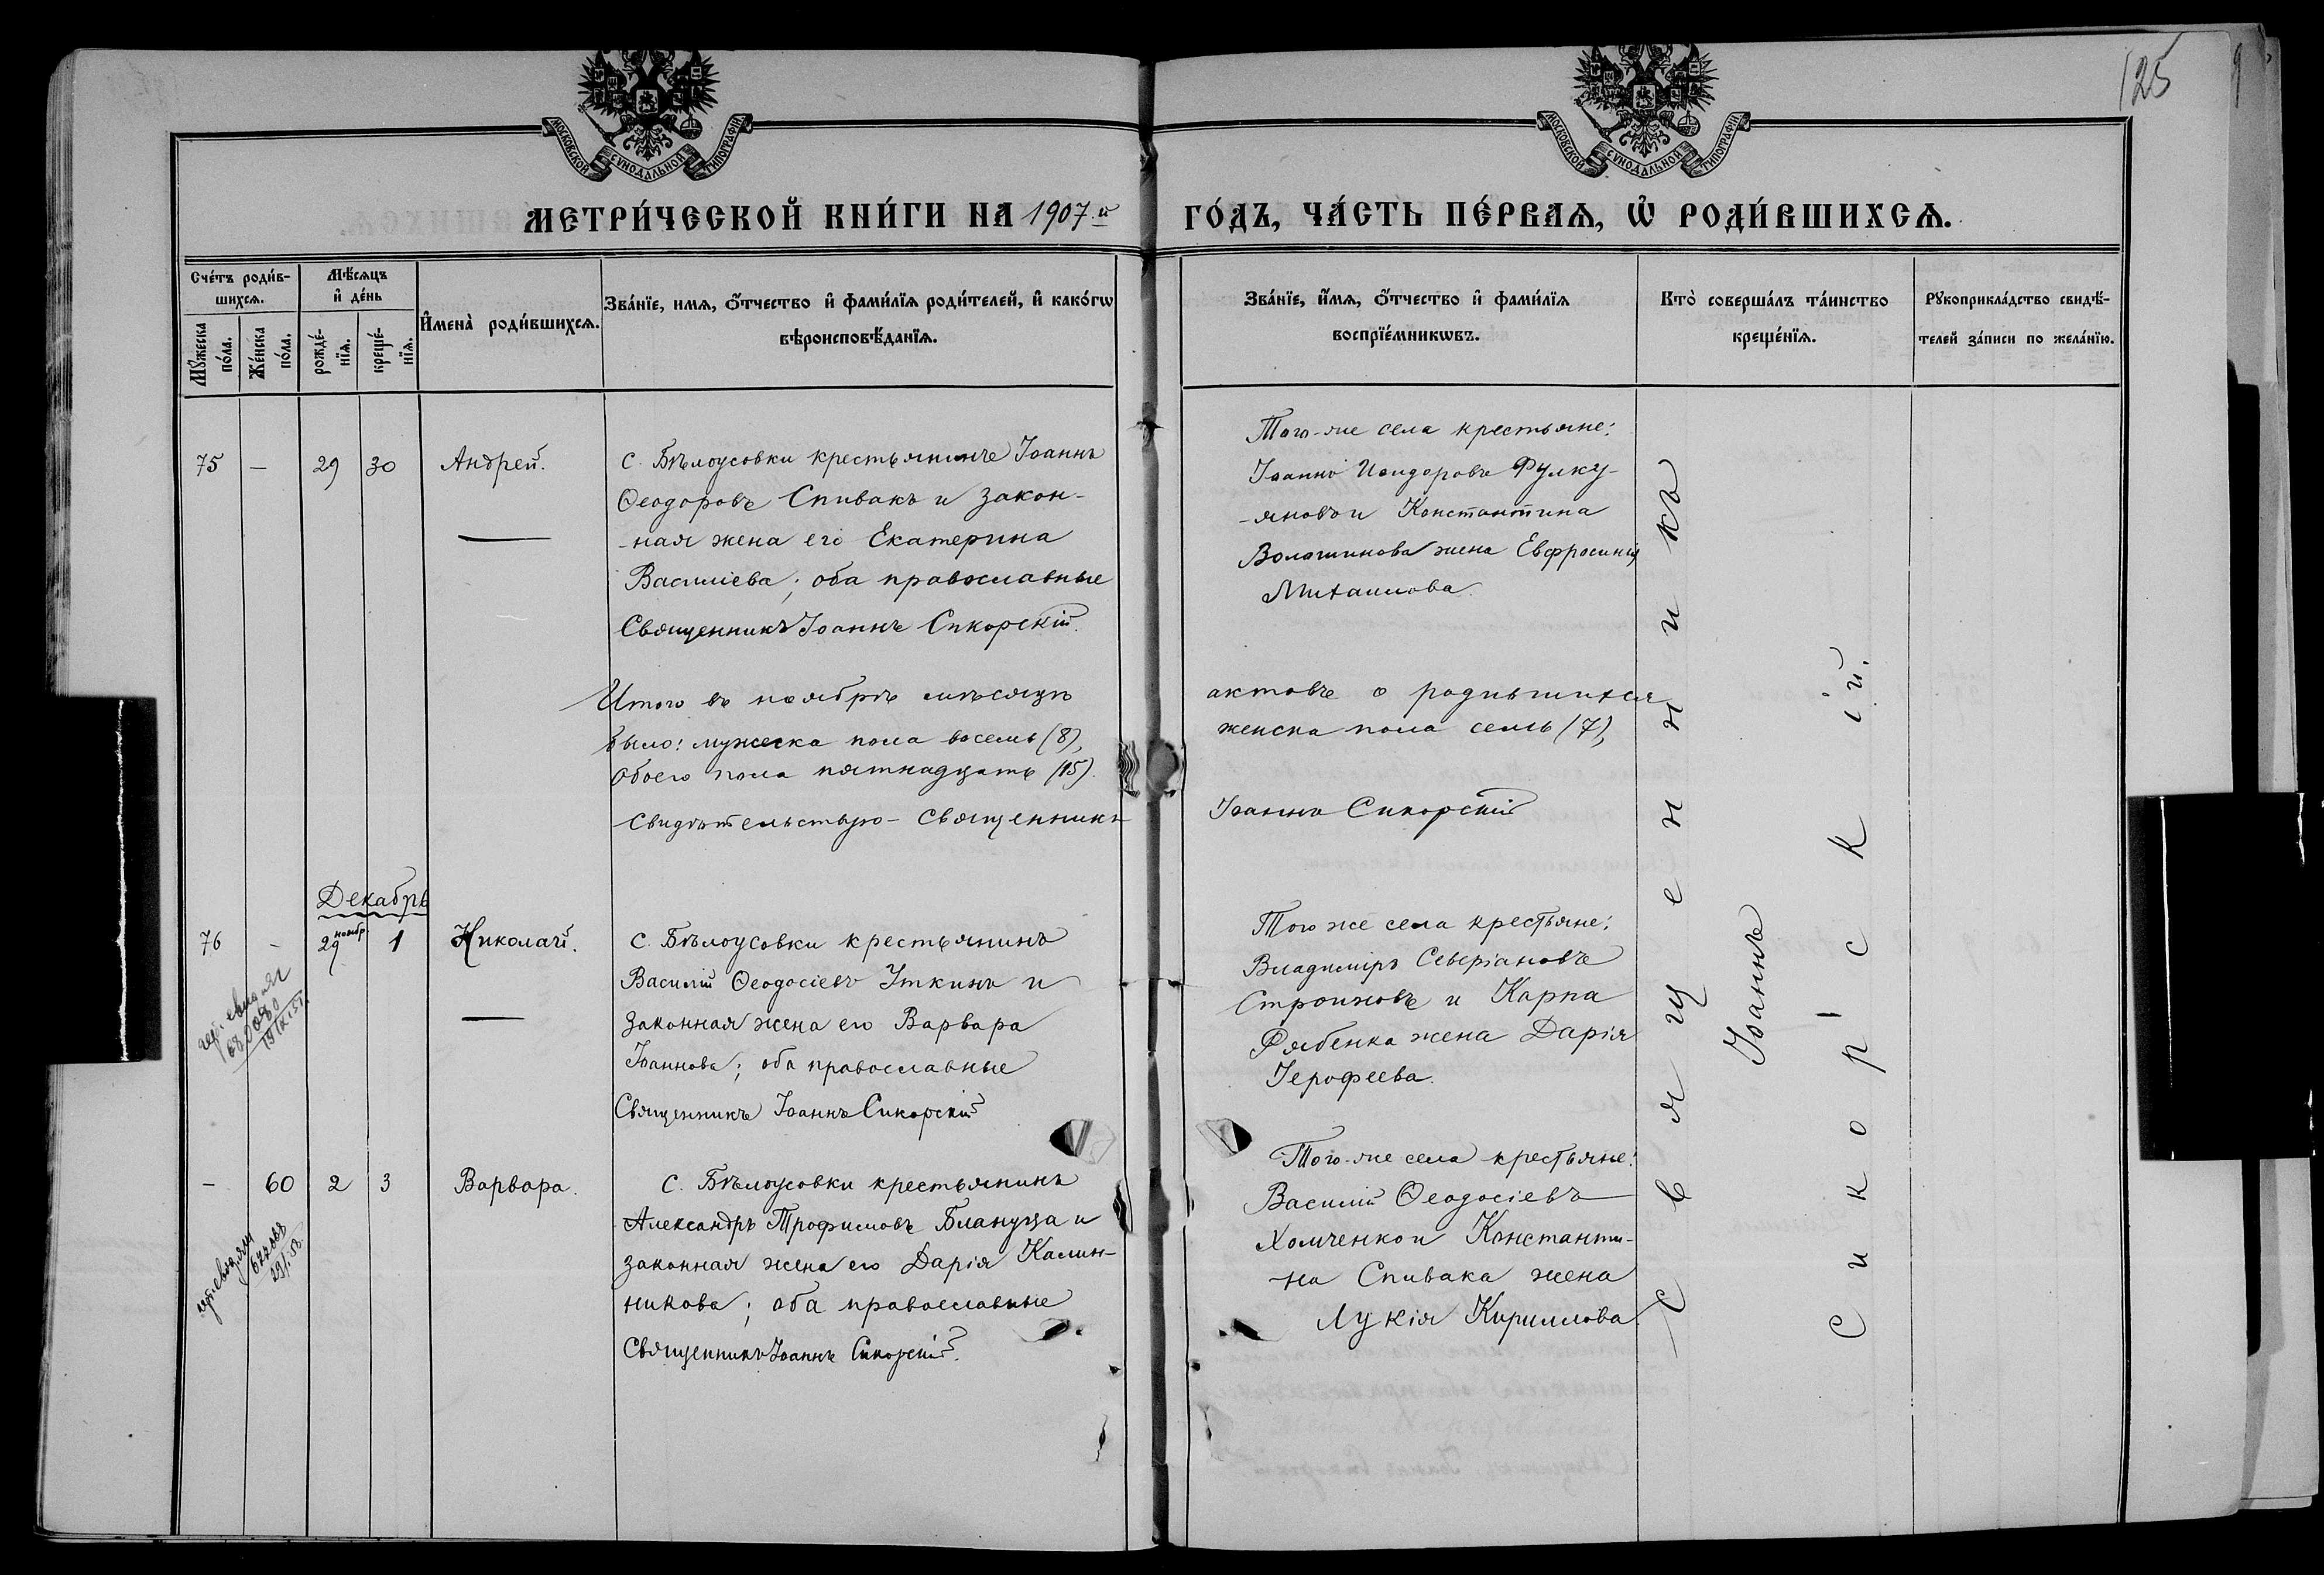 125
МОСКОВСКОЙ СѴНОДАЛЬНОЙ ТИПОГРАФІИ
МОСКОВСКОЙ СѴНОДАЛЬНОЙ ТИПОГРАФІИ
МЕТРИ́ЧЕСКОЙ КНИ́ГИ НА 1907.й ГО́ДЪ, ЧА́СТЬ ПЕ́РВАѦ, Ѽ РОДИ́ВШИХСѦ.
Сче́тъ роди́в-
шихсѧ.
Мꙋ́жеска по́ла.
Же́нска по́ла.
Мѣ́сѧцъ
и҆ де́нь
рожде́-
нїѧ.
креще́-
нїѧ.
И҆мена̀ роди́вшихсѧ.
Зва́нїе, имѧ, ѻ҆́тчество и҆ фами́лїѧ роди́телей, и҆ како́гѡ
вѣроисповѣ́данїѧ.
Зва́нїе, и҆́мѧ, ѻ҆́тчество и҆ фами́лїѧ
воспрїе́мникѡвъ.
Кто̀ соверша́лъ та́инство
креще́нїѧ.
Рꙋкоприкла́дство свидѣ́-
телей за́писи по жела́нїю.
75 — 29 30 Андрей.
с. Бѣлоусовки крестьянинъ Іоаннъ
Ѳеодоровъ Спивакъ и закон-
-ная жена его Екатерина
Василіева; оба православные
Священникъ Іоаннъ Сикорскій.
Того-же села крестьяне:
Іоаннъ Исидоровъ Фулку-
-яновъ и Константина
Волошинова жена Евфросинія
Михаилова.
Итого въ ноябрѣ мѣсяцѣ актовъ о родившихся
было: мужеска пола восемь (8), женска пола семь (7),
Обоего пола пятнадцать (15).
Свидѣтельствую - Священникъ Іоаннъ Сикорскій
Декабрь
76 - 29 ноябр. 1 Николай.
с. Бѣлоусовки крестьянинъ
Василій Ѳеодосіевъ Уткинъ и
законная жена его Варвара
Іоаннова; оба православные
Священникъ Іоаннъ Сикорскій
Того же села крестьяне:
Владиміръ Северіановъ
Строиновъ и Карпа
Рябенка жена Дарія
Іерофеева.
- 60 2 3 Варвара.
с. Бѣлоусовки крестьянинъ
Александръ Трофимовъ Блануца и
законная жена его Дарія Калин-
никова; оба православные
Священникъ Іоаннъ Сикорскій.
Того-же села крестьяне:
Василій Ѳеодосіевъ
Хомченко и Константи-
-на Спивака жена
Лукія Кириллова.
Священникъ
Іоаннъ
Сикорскій.